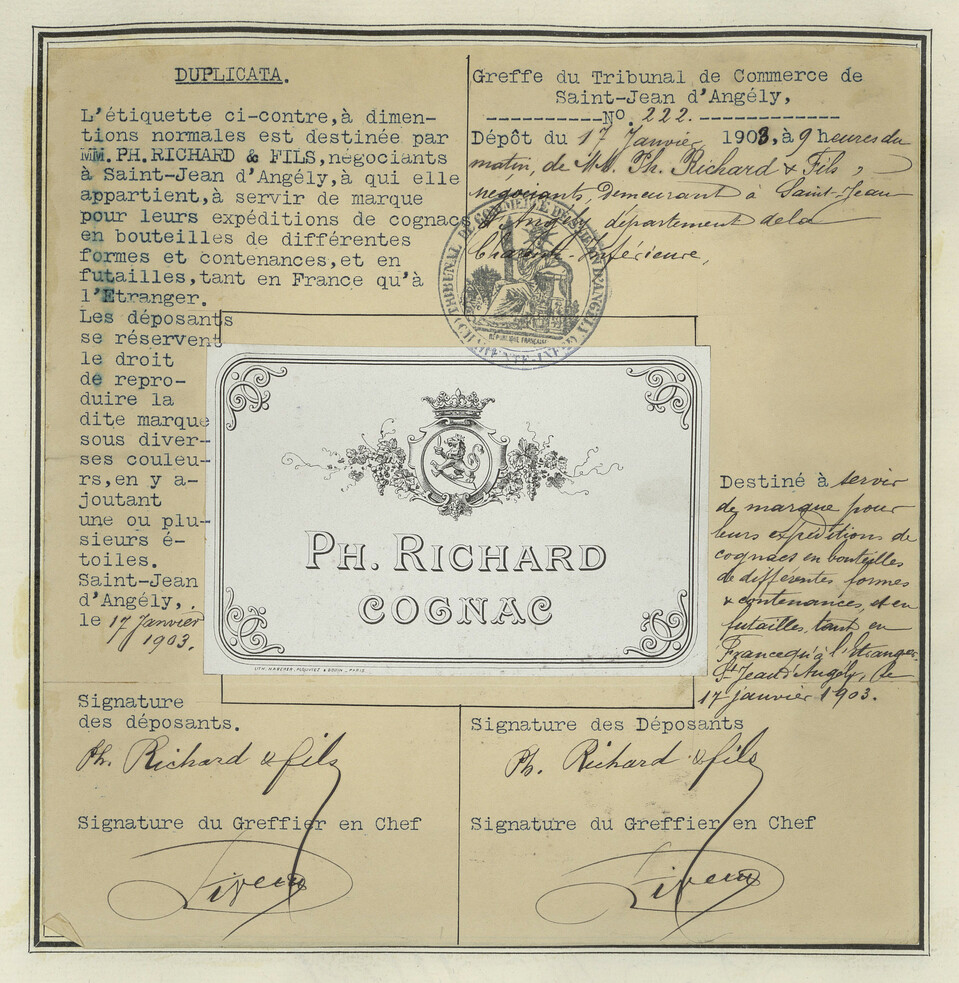 DUPLICATA.
L'étiquette ci-contre,à dimen-
tions normales est destinée par
MM.PH.RICHARD & FILS,négociants
à Saint-Jean d'Angély,à qui elle
appartient,à servir de marque
pour leurs expéditions de cognacs
en bouteilles de différentes
formes et contenances,et en
futailles,tant en France qu'à
l'Etranger.
Les déposants
se réservent
le droit
de repro-
duire la
dite marque
sous diver-
ses couleu-
rs,en y a-
joutant
une ou plu-
sieurs é-
toiles.
Saint-Jean
d'Angély,.
le 17 Janvier
1903.
Signature
des déposants.
Ph. Richard & fils
Signature du Greffier en Chef
Greffe du Tribunal de Commerce de
Saint-Jean d'Angély,
----------No. 222.-------------
Dépôt du 17 Janvier 1903,à 9 heures du
matin, de MM. Ph. Richard & Fils,
négociants, Demeurant à Saint-Jean
d'Angély, département de la
Charente-Inférieure,
TRIBUNAL DE COMMERCE DE ST JEAN D'ANGELY
(CHARENTE-INFRE)
RÉPUBLIQUE FRANÇAISE
PH. RICHARD
COGNAC
LITH. HABERER, &
PARIS
Destiné à servir
de marque pour
leurs expéditions de
cognacs en bouteilles
de différentes formes
& contenances, et en
futailles, tant en
France qu'à l'Etranger.
St Jean d'Angély, le
17 janvier 1903.
Signature des Déposants
Ph. Richard & fils
Signature du Greffier en Chef